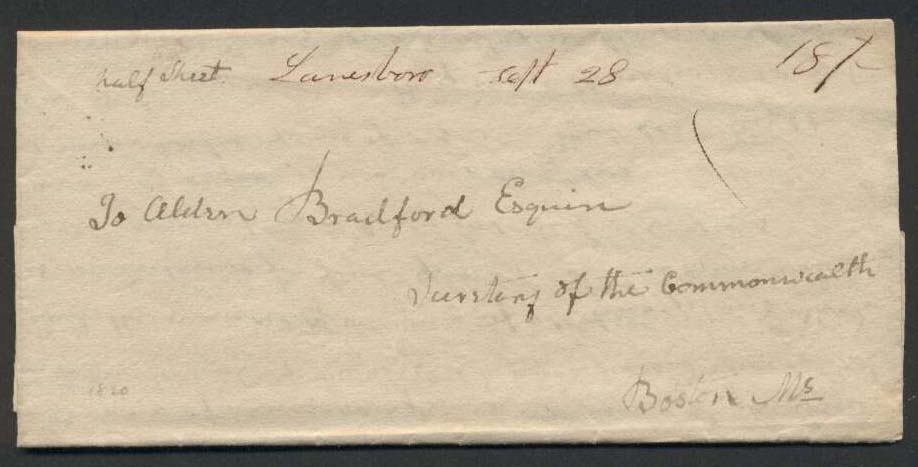 half Sheet Lanesboro Sept 28 18½
To Alden Bradford Esquire
Secretary of the Commonwealth
1820
Boston Ms